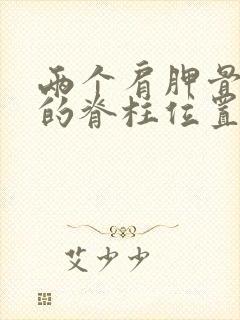 两个肩胛骨
的脊柱位置
艾少少